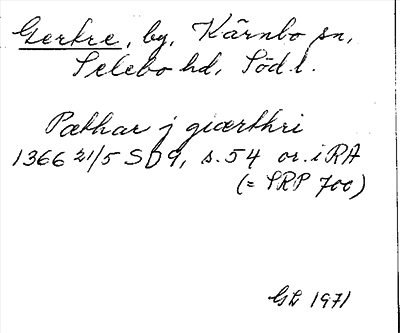 Gerkre, by, Kärnbo sn,
Selebo hd, Södl.
Pæthar j giærthri
1366 21/5 SD 9, s. 54 or. i RA
(= SRP 700)
GL 1971